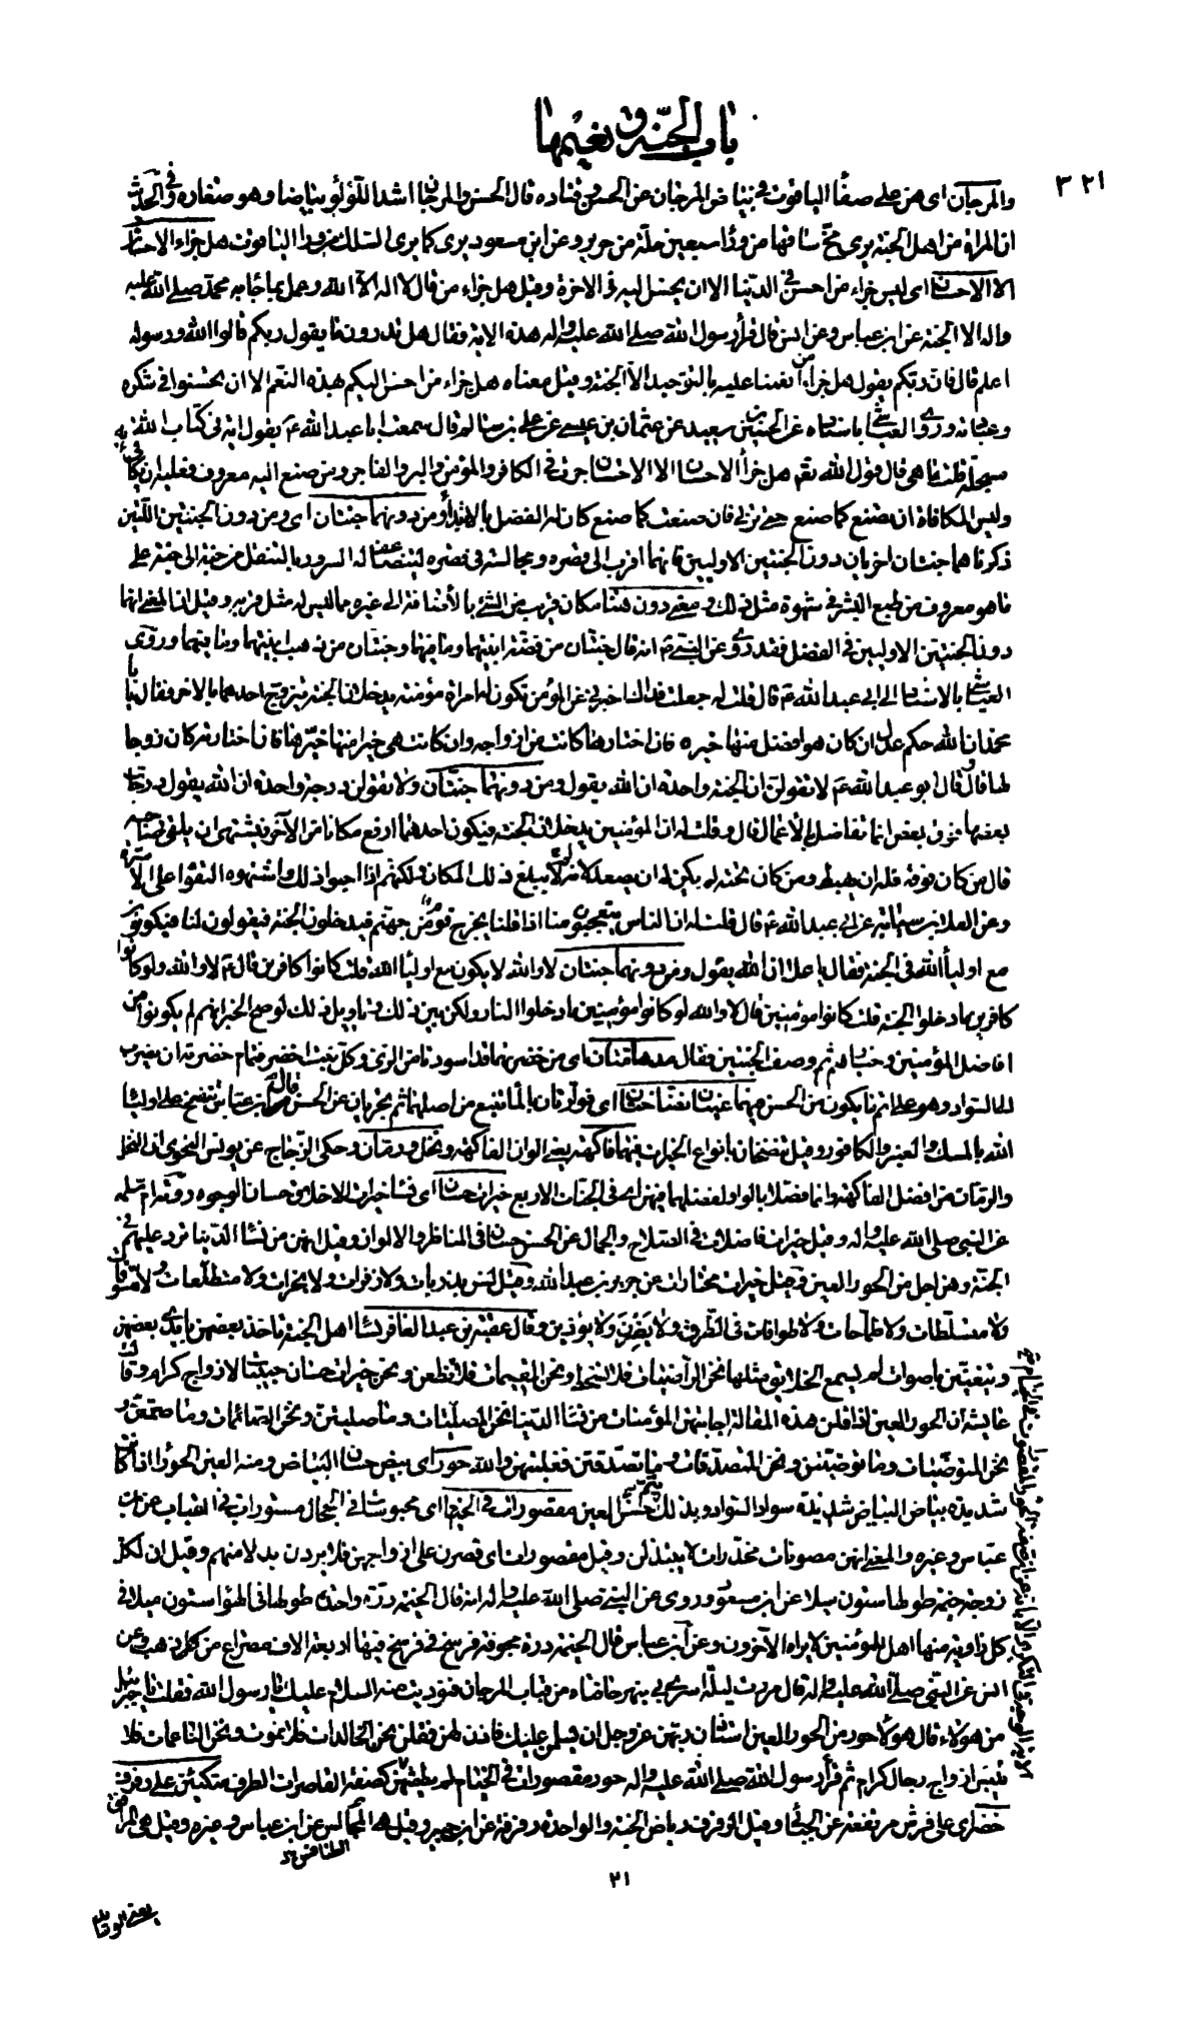 باب الجنة و نعيمها
٣٢١
والمرجان اى هن على صفاء الياقوت فى بياض المرجان عن الحسن وقتادة وقال الحسن والمرجان اشد اللؤلؤ بياضا وهو صغاره وفى الحديث
ان المراة من اهل الجنة يرى مخ ساقها من وراء سبعين حلة من حرير وعن ابن مسعود يرى كما يرى السلك من وراء الياقوت هل جزاء الاحسان
الا الاحسان اى ليس جزاء من احسن فى الدنيا الا ان يحسن اليه فى الاخرة وقيل هل جزاء من قال لا اله الا الله وعمل بما جاء به محمد صلى الله عليه
واله الا الجنة عن ابن عباس وعن انس قال قرأ رسول الله صلى الله عليه واله هذه الاية فقال هل تدرون ما يقول ربكم قالوا الله ورسوله
اعلم قال فان ربكم يقول هل جزاء من انعمنا عليه بالتوحيد الا الجنة وقيل معناه هل جزاء من احسن اليكم بهذه النعم الا ان تحسنوا فى شكره
وعبادته وروى العياشى باسناده عن الحسين بن سعيد عن عثمان بن عيسى عن على بن سالم قال سمعت ابا عبد الله ع يقول اية فى كتاب الله
مسجلة قلت ما هى قال قول الله تعم هل جزاء الاحسان الا الاحسان جرت فى الكافر والمؤمن والبر والفاجر ومن صنع اليه معروف فعليه ان يكافئ به
وليس المكافاة ان يصنع كما صنع حتى يربى فان صنعت كما صنع كان له الفضل بالابتداء ومن دونهما جنتان اى ومن دون الجنتين اللتين
ذكرناهما جنتان اخريان دون الجنتين الاوليين فانهما اقرب الى قصره ومجالسه فى قصره ليتضاعف له السرور بالتنقل من جنة الى جنة على
ما هو معروف من طبع البشر فى شهوة مثل ذلك ومعنى دون هنا مكان قريب من الشئ بالاضافة الى غيره مما ليس له مثل قربه وقيل ان المعنى انهما
دون الجنتين الاوليين فى الفضل فقد روى عن النبى ص انه قال جنتان من فضة ابنيتهما وما فيهما وجنتان من ذهب ابنيتهما وما فيهما وروى
العياشى بالاسناد الى ابى عبد الله ع قال قلت له جعلت فداك اخبرنى عن المؤمن تكون له امراة مؤمنة يدخلان الجنة يتزوج احدهما بالاخر فقال يا با
محمد ان الله حكم عدل ان كان هو افضل منها خيره فان اختارها كانت من ازواجه وان كانت هى خيرا منها خيرها فان اختارته كان زوجا
لها قال وقال ابو عبد الله ع لا تقولن ان الجنة واحدة ان الله يقول ومن دونهما جنتان ولا تقولن درجة واحدة ان الله يقول درجات
بعضها فوق بعض انما تفاضل بالاعمال قال وقلت له ان المؤمنين يدخلان الجنة فيكون احدهما ارفع مكانا من الاخر فيشتهى ان يلقى صاحبه
قال من كان فوقه فله ان يهبط ومن كان تحته لم يكن له ان يصعد لانه لم يبلغ ذلك المكان ولكنهم اذا احبوا ذلك واشتهوه التقوا على الاسرة
وعن العلاء بن سيابة عن ابى عبد الله ع قال قلت له ان الناس يتعجبون منا اذا قلنا يخرج قوم من جهنم فيدخلون الجنة فيقولون لنا فيكونون
مع اولياء الله فى الجنة فقال يا علا ان الله يقول ومن دونهما جنتان لا والله لا يكون مع اولياء الله قلت كانوا كافرين قال ع لا والله ولو كانوا
كافرين ما دخلوا الجنة قلت كانوا مؤمنين قال لا والله لو كانوا مؤمنين ما دخلوا النار ولكن بين ذلك وتاويل ذلك لو صح الخبر انهم لم يكونوا من
افاضل المؤمنين وخيارهم ثم وصف الجنتين فقال مدهامتان اى من خضرتهما قد اسودتا من الرى وكل نبت اخضر فتمام خضرته ان يضرب
الى السواد وهو على اتم ما يكون من الحسن فيهما عينان نضاختان اى فوارتان بالماء ينبع من اصلهما ثم يجريان عن الحسن قال ابن عباس تنضخ على اولياء
الله بالمسك والعنبر والكافور وقيل تنضخان بانواع الخيرات فيهما فاكهة يعنى الوان الفاكهة ونخل ورمان وحكى الزجاج عن يونس النحوى ان النخل
والرمان من افضل الفاكهة وانما فصلا بالواو لفضلهما فيهن اى فى الجنات الاربع خيرات حسان اى نساء خيرات الاخلاق حسان الوجوه روته ام سلمة
عن النبى صلى الله عليه واله وقيل خيرات فاضلات فى الصلاح والجمال عن الحسن حسان فى المناظر والالوان وقيل انهن من نساء الدنيا ترد عليهم فى
الجنة وهن اجمل من الحور العين وقيل خيرات مختارات عن جرير بن عبد الله وقيل لسن بذربات ولا زفرات ولا بخرات ولا متطلعات ولا متسوفات
ولا متسلطات ولا طماحات ولا طوافات فى الطرق ولا يغرن ولا يؤذين وقال عقبة بن عبد الغافر نساء اهل الجنة تاخذ بعضهن بايدى بعضهن
ويتغنين باصوات لم يسمع الخلايق مثلها نحن الراضيات فلا نسخط ونحن المقيمات فلا نظعن ونحن خيرات حسان حبيبات لازواج كرام وقالت
عايشة ان الحور العين اذا قلن هذه المقالة اجابتهن المؤمنات من نساء الدنيا نحن المصليات وما صليتن ونحن الصائمات وما صمتن و
نحن المتوضئات وما توضئتن ونحن المتصدقات وما تصدقتن فغلبنهن والله حور اى بيض حسان البياض ومنه العين الحوراء اذا كانت
شديدة بياض البياض شديدة سواد السواد وبذلك يتم حسن العين مقصورات فى الخيام اى محبوسات فى الحجال مستورات فى القباب عن ابن
عباس وغيره والمعنى انهن مصونات مخدرات لا يبتذلن وقيل مقصورات اى قصرن على ازواجهن فلا يردن بدلا منهم وقيل ان لكل
زوجة خيمة طولها ستون ميلا عن ابن مسعود وروى عن النبى صلى الله عليه واله انه قال الخيمة درة واحدة طولها فى الهواء ستون ميلا فى
كل زاوية منها اهل للمؤمنين لا يراه الاخرون وعن ابن عباس قال الخيمة درة مجوفة فرسخ فى فرسخ فيها اربعة الاف مصراع من ذهب وعن
انس عن النبى صلى الله عليه واله قال مررت ليلة اسرى بى بنهر حافتاه من قباب المرجان فنوديت منه السلام عليك يا رسول الله فقلت يا جبرئيل
من هؤلاء قال هؤلاء حور من الحور العين استاذن ربهن عز وجل ان يسلمن عليك فاذن لهن فقلن نحن الخالدات فلا نموت ونحن الناعمات فلا
نيبس ازواج رجال كرام ثم قرأ رسول الله صلى الله عليه واله حور مقصورات فى الخيام لم يطمثهن كصفة القاصرات الطرف متكئين على رفرف
خضر اى على فرش مرتفعة عن الجبائى وقيل الرفرف رياض الجنة والواحدة رفرفة عن ابن جبير وقيل هى المجالس عن ابن عباس وغيره وقيل هى المرافق
الطنافس
٢١
يعنى الوسائد